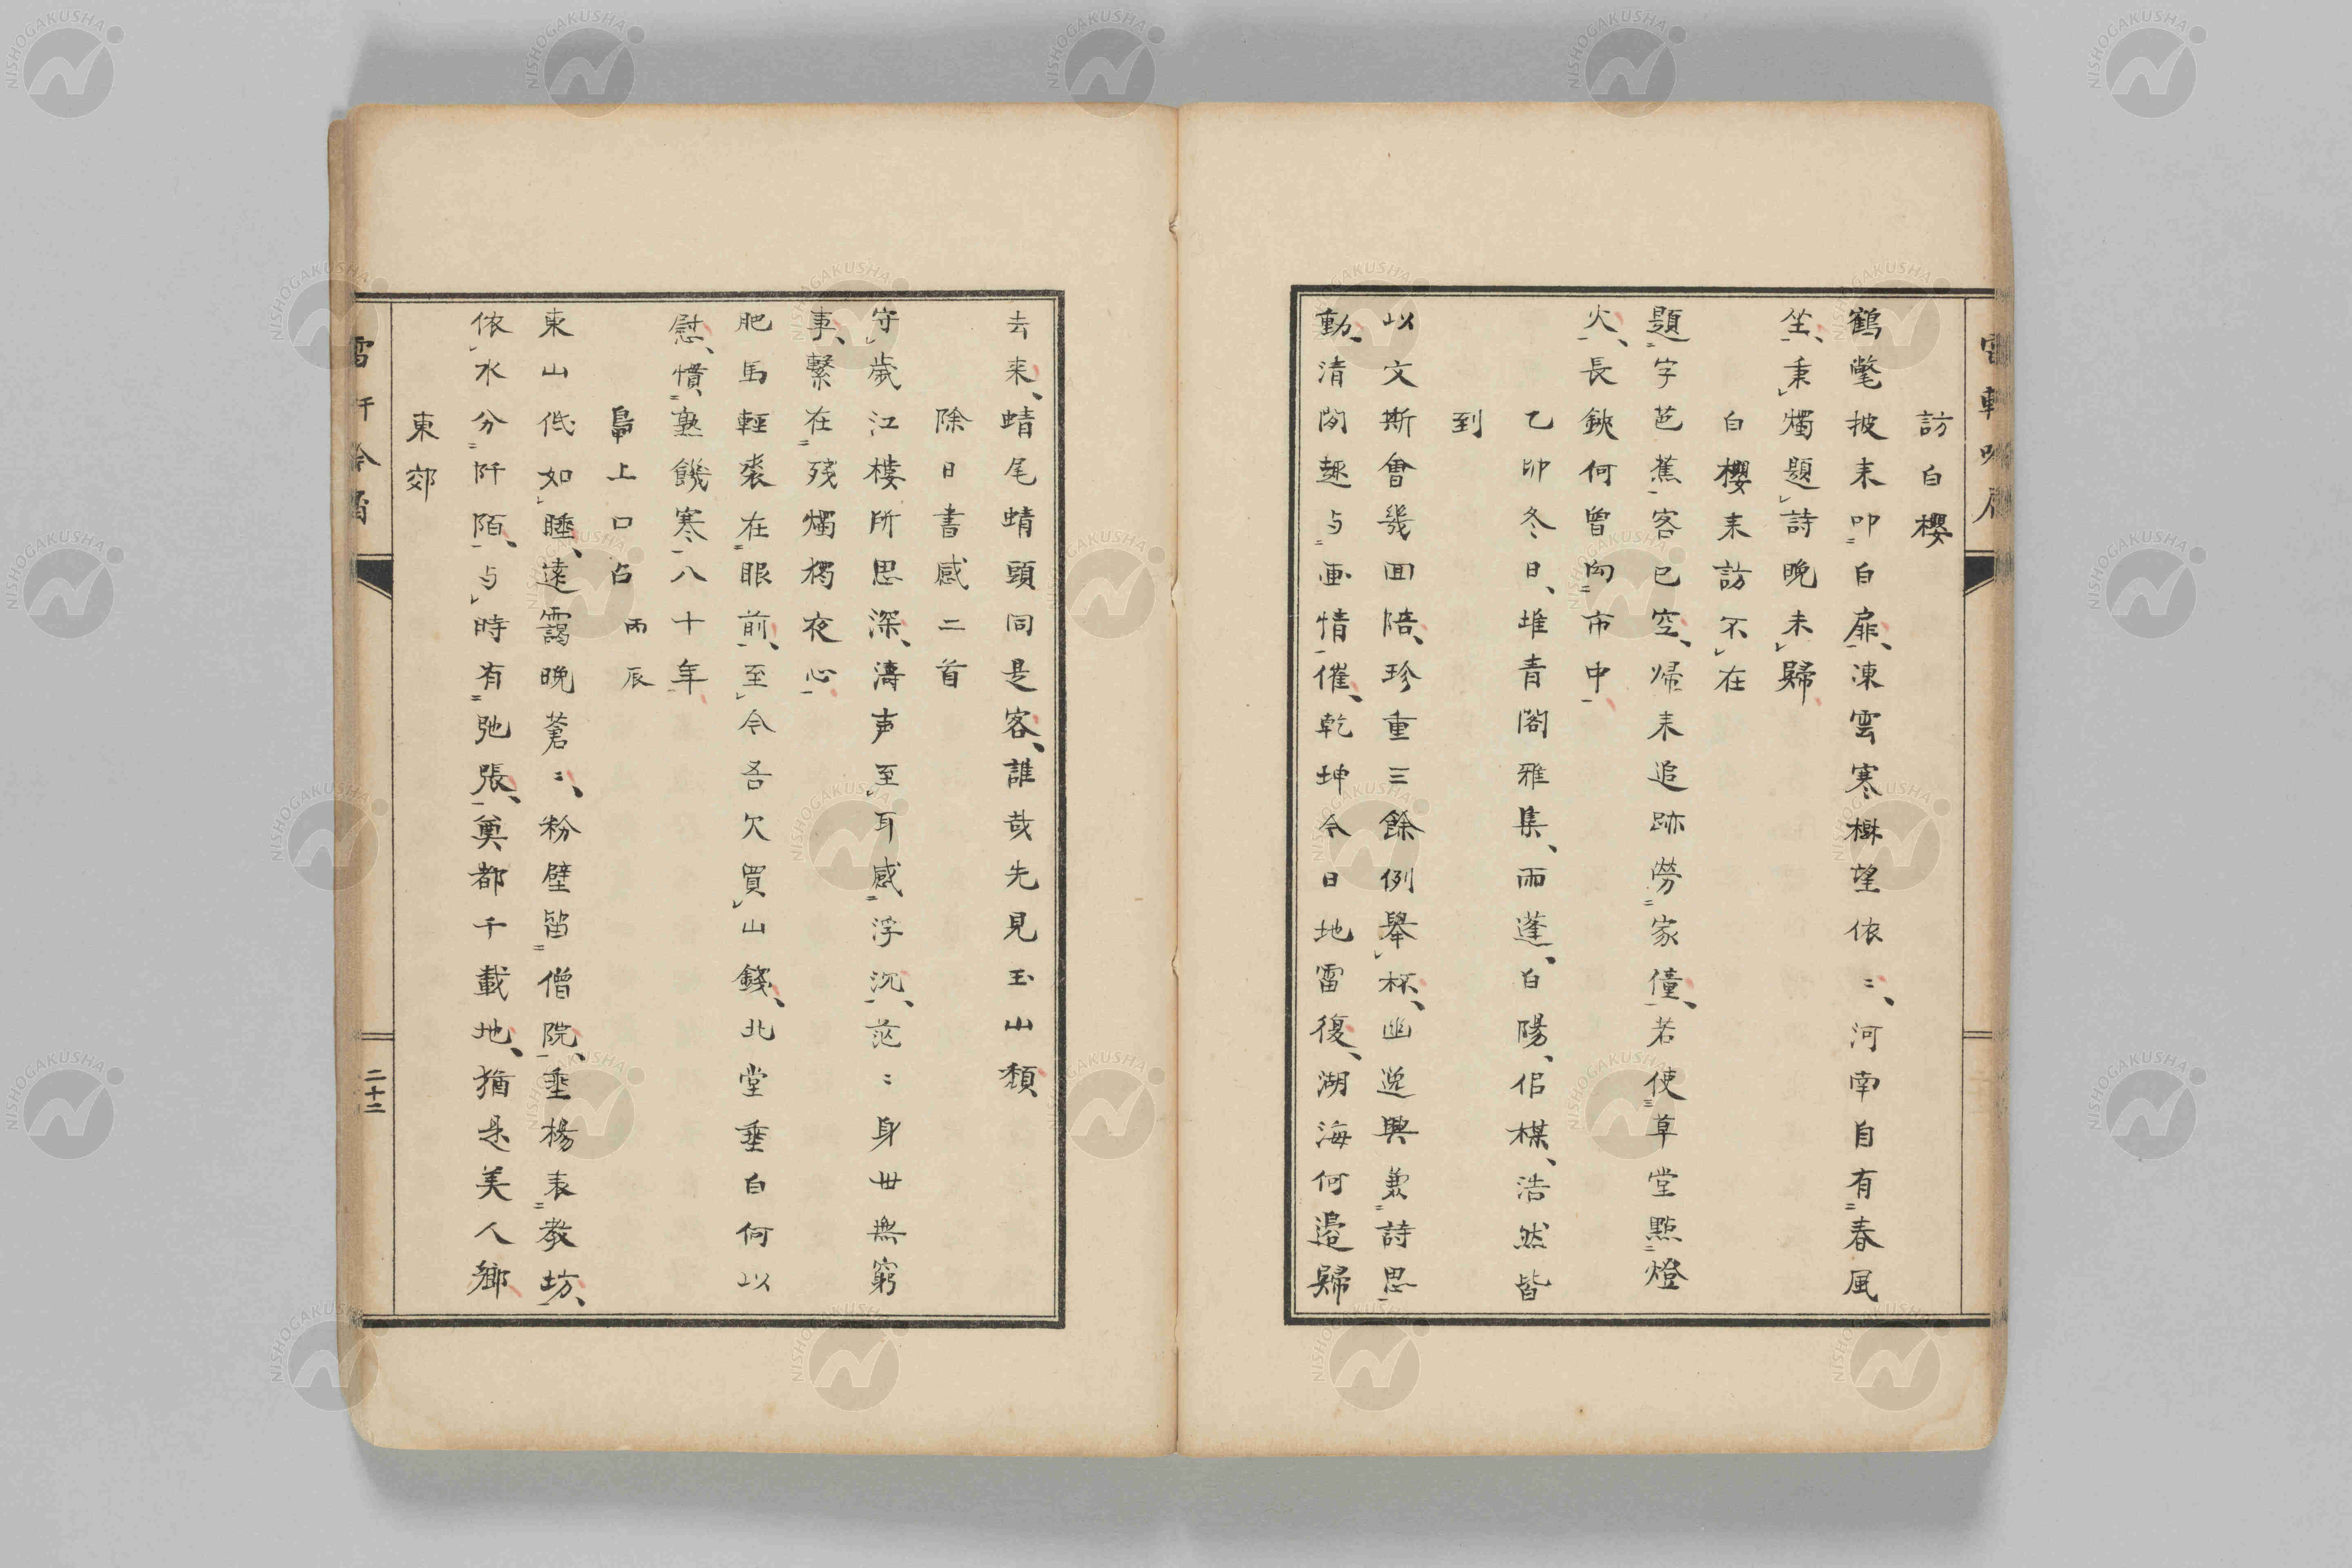 訪白櫻
鶴氅披来叩白扉、凍雲寒樹望依〻、河南自有春風
坐、秉燭題詩晩未歸
白櫻来訪不在
題字芭蕉客已空、帰来追跡勞家僮、若使草堂點燈
火、長鋏何曽向市中
乙卯冬日、堆青閣雅集、雨蓬、白陽、佀楳、浩然皆
到
以文斯會幾回陪、珍重三餘例擧杯、幽逸興兼詩思
動、清閑趣与画情催、乾坤今日地雷復、湖海何邉歸
去来、蜻尾蜻頭同是客、誰哉先見玉山頽
除日書感二首
守歳江樓所思深、濤声至耳感浮沉、茫〻身世無窮
事、繋在残燭獨夜心
肥馬輕裘在眼前、至今吾欠買山錢、北堂垂白何以
慰、慣熟饑寒八十年
鳧上口占 丙辰
東山低如睡、遠靄晩蒼〻、粉壁皆僧院、垂楊表教坊、
依水分阡陌、与時有弛張、奠都千載地、猶是美人鄉
東郊
二十二
NISHOGAKUSHA